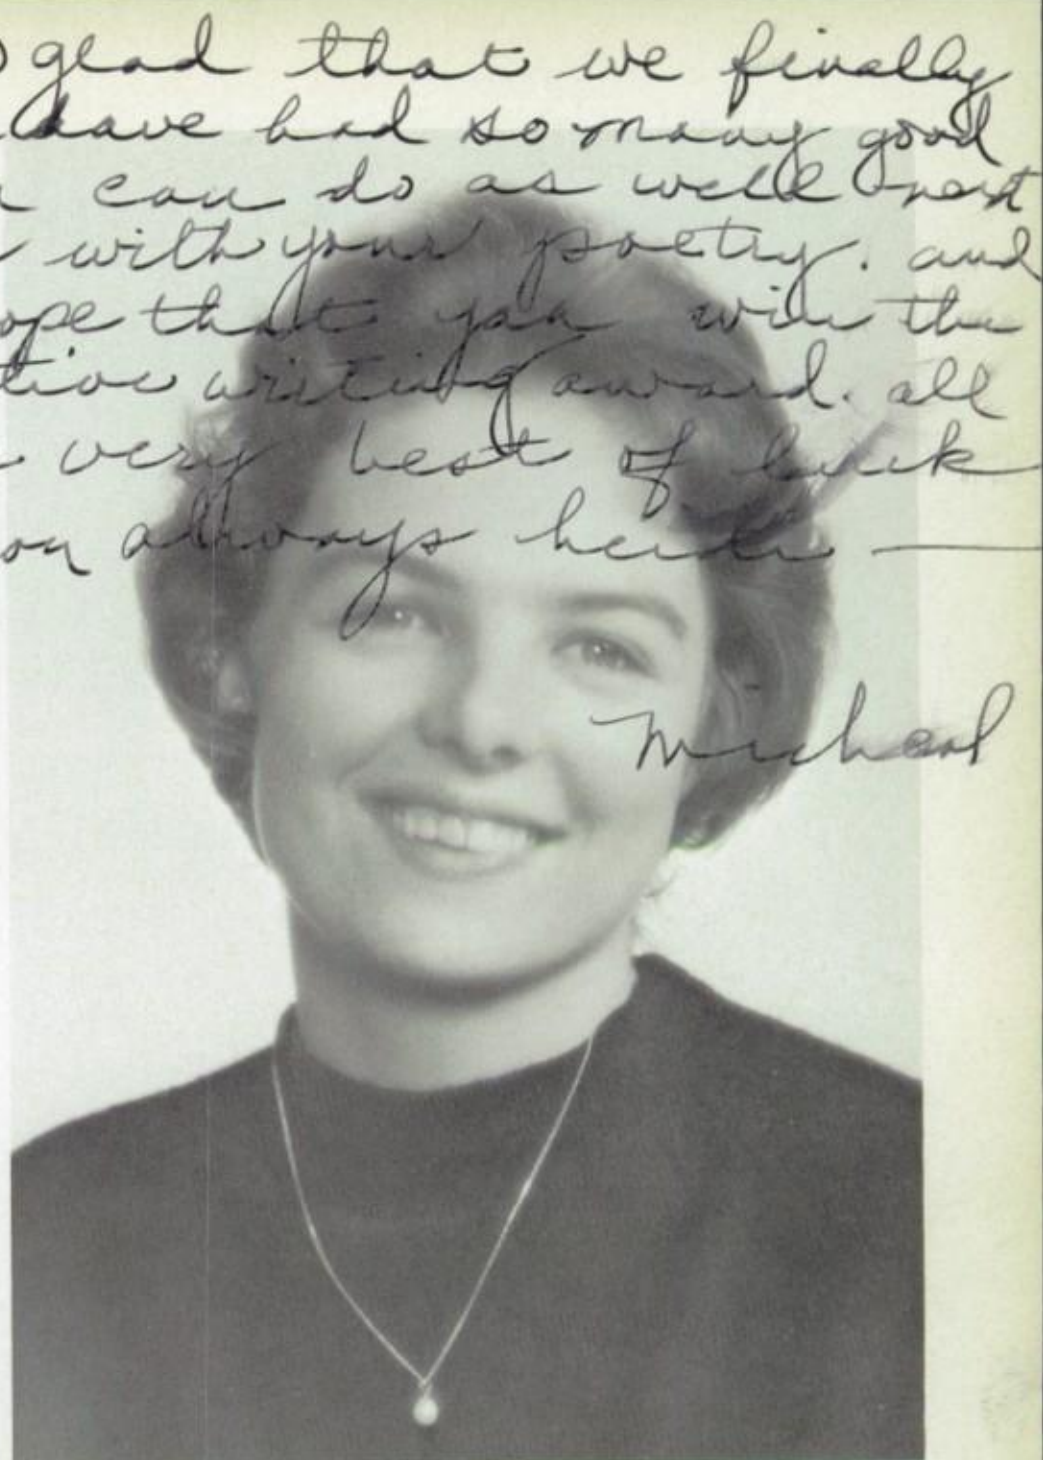 glad that we finally
have had so many good
can do as well next
with your poetry. and
ope that you win the
tive writing award. all
very best of luck
on always heidi —
Micheal